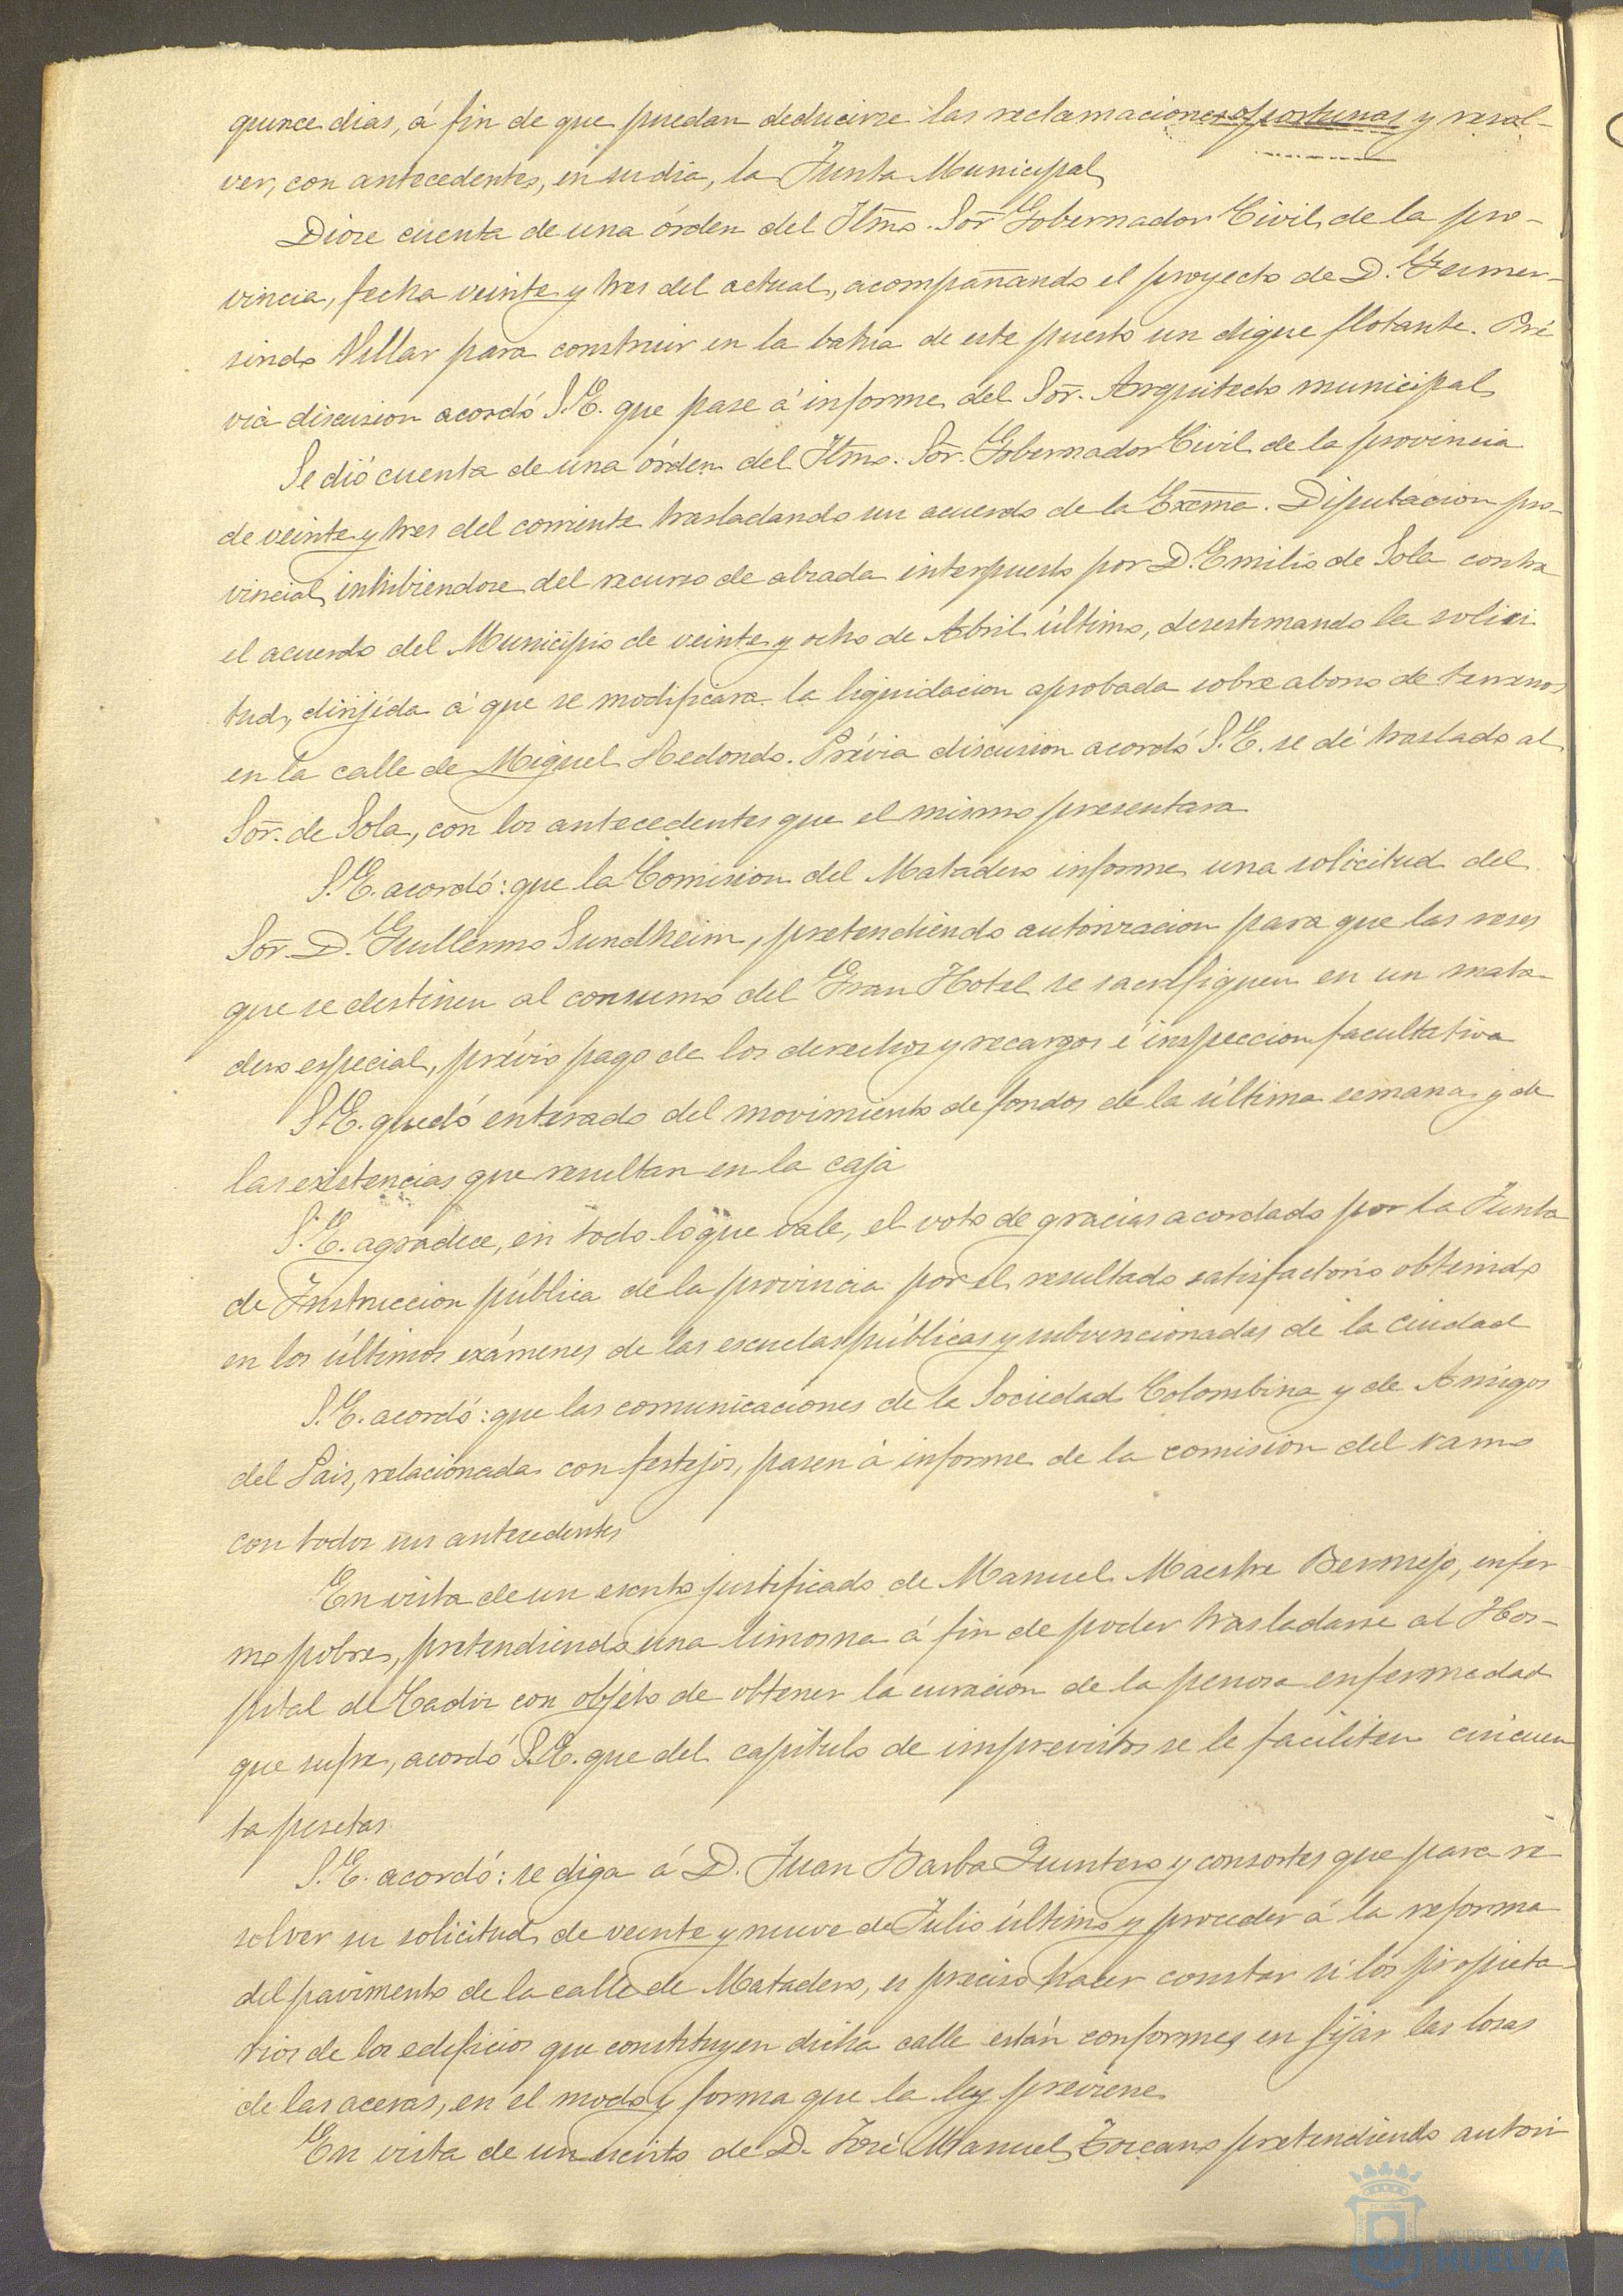 quince dias, á fin de que puedan deducirse las reclamaciones oportunas y resol-
ver, con antecedentes, en su dia, la Junta Municipal
Diose cuenta de una órden del Iltmo. Sor. Gobernador Civil de la pro-
vincia, fecha veinte y tres del actual, acompañando el proyecto de D. Gumer-
sindo Villar para construir en la bahia de este puerto un dique flotante. Pré
via discusion acordó S.E. que pase á informe del Sor. Arquitecto municipal
Se dió cuenta de una órden del Iltmo. Sor. Gobernador Civil de la provincia
de veinte y tres del corriente trasladando un acuerdo de la Excma. Diputacion pro-
vincial, inhibiendose del recurso de alzada interpuesto por D. Emilio de Sola contra
el acuerdo del Municipio de veinte y ocho de Abril último, desestimando la solici
tud, dirijida á que se modificara la liquidacion aprobada sobre abono de terrenos
en la calle de Miguel Redondo. Prévia discusion acordó S.E. se dé traslado al
Sor. de Sola, con los antecedentes que el mismo presentara
S.E. acordó: que la Comision del Matadero informe una solicitud del
Sor. D. Guillermo Sundheim, pretendiendo autorizacion para que las reses
que se destinen al consumo del Gran Hotel se sacrifiquen en un mata-
dero especial, prévio pago de los derechos y recargos é inspeccion facultativa
S.E. quedó enterado del movimiento de fondos de la última semana y de
las existencias que resultan en la caja
S.E. agradece, en todo lo que vale, el voto de gracias acordado por la Junta
de Instruccion pública de la provincia por el resultado satisfactorio obtenido
en los últimos exámenes de las escuelas públicas y subvencionadas de la ciudad
S.E. acordó: que las comunicaciones de la Sociedad Colombina y de Amigos
del Pais, relacionadas con festejos, pasen á informe de la comision del ramo
con todos sus antecedentes
En vista de un escrito justificado de Manuel Maestre Bermejo, enfer-
mo pobre, pretendiendo una limosna á fin de poder trasladarse al Hos-
pital de Cadiz con objeto de obtener la curacion de la penosa enfermedad
que sufre, acordó S.E. que del capítulo de imprevistos se le faciliten cincuen
ta pesetas
S.E. acordó: se diga á D. Juan Barba Quintero y consortes que para re
solver su solicitud de veinte y nueve de Julio último y proceder á la reforma
del pavimento de la calle de Matadero, es preciso hacer constar si los propieta-
rios de los edificios que constituyen dicha calle están conformes en fijar las losas
de las aceras, en el modo y forma que la ley previene
En vista de un escrito de D. José Manuel Toscano pretendiendo autori
Ayuntamiento de
HUELVA